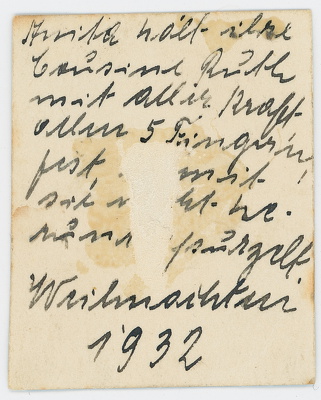 Anita hält ihre
Cousine Ruth
mit aller Kraft
allen 5 Fingern
fest, mit
sie he-
runt purzelt
Weihnachten
1932